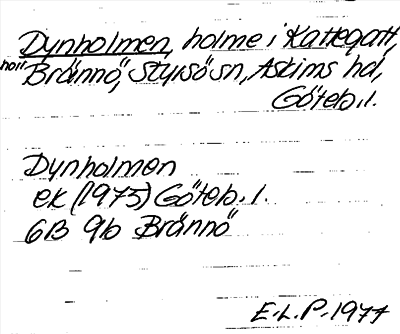 Dynholmen, holme i Kattegatt,
hör Brännö, Styrsö sn, Askims hd,
Göteb. l.
Dynholmen
ek (1975) Göteb. l.
6B 9b Brännö
E.L.P. 1977